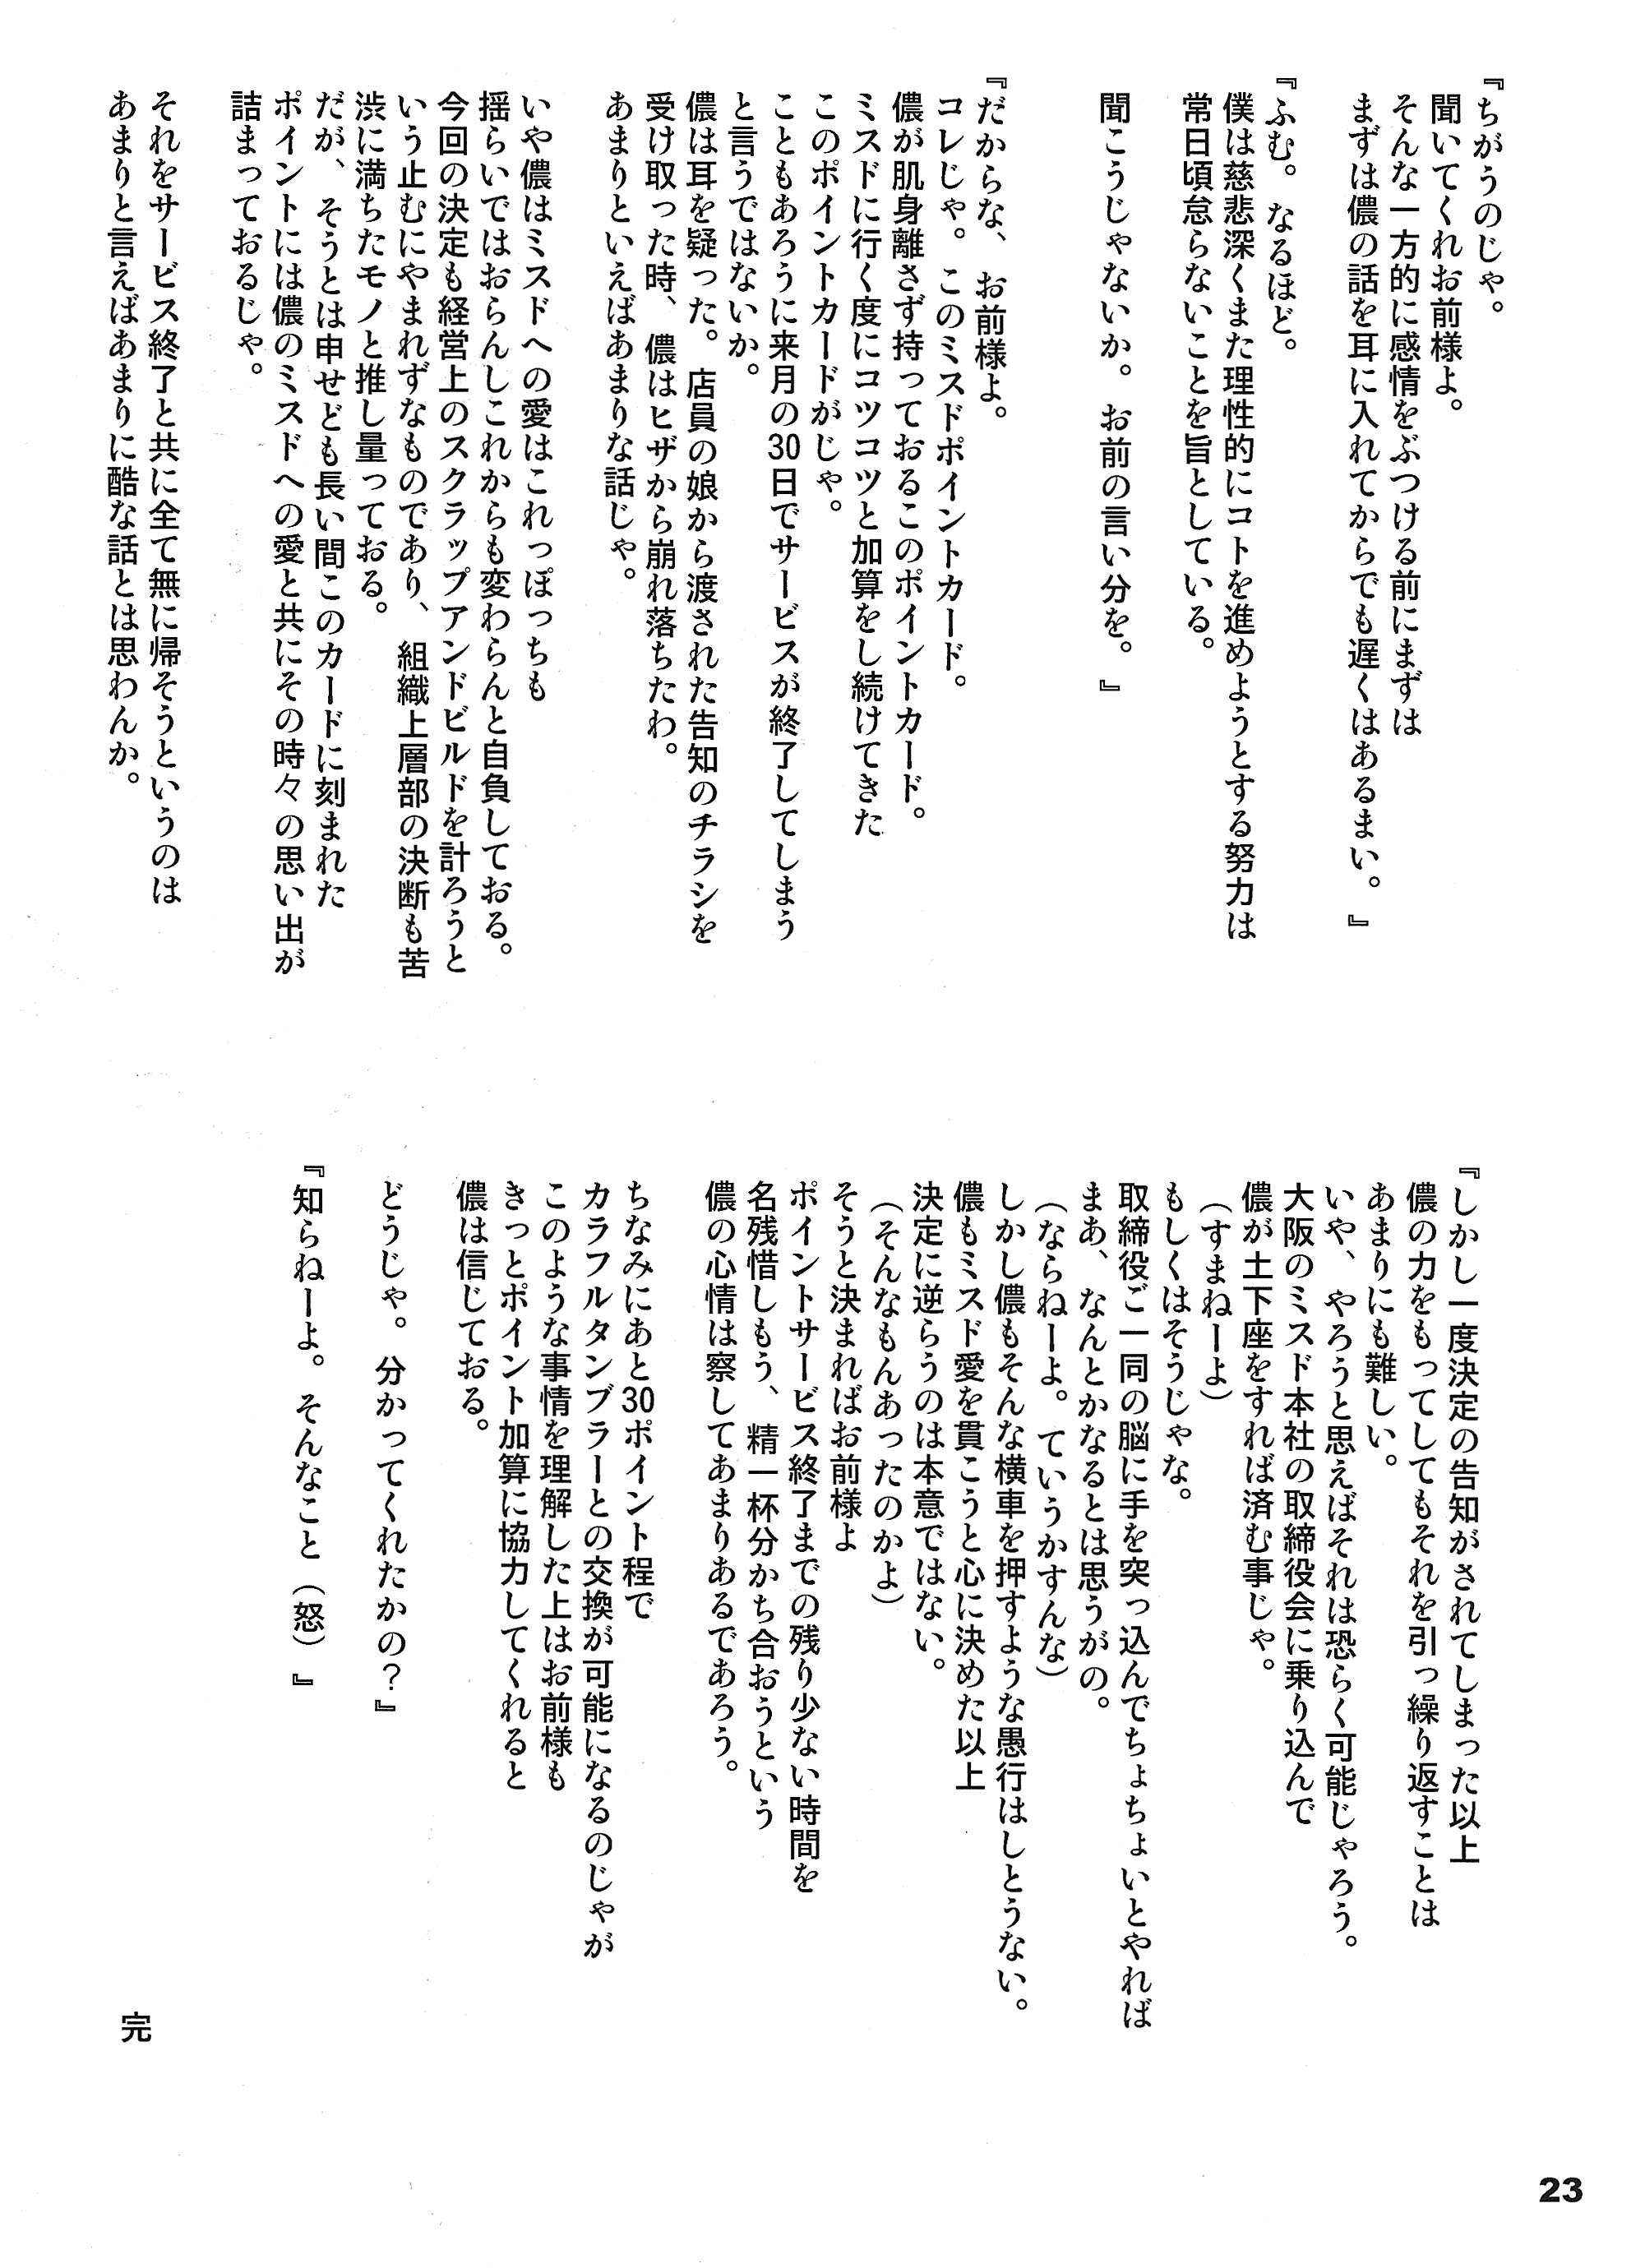 『ちがうのじゃ。
聞いてくれお前様よ。
そんな一方的に感情をぶつける前にまずは
まずは儂の話を耳に入れてからでも遅くはあるまい。』
『ふむ。なるほど。
僕は慈悲深くまた理性的にコトを進めようとする努力は
常日頃怠らないことを旨としている。
聞こうじゃないか。お前の言い分を。』
『だからな、お前様よ。
コレじゃ。このミスドポイントカード。
儂が肌身離さず持っておるこのポイントカード。
ミスドに行く度にコツコツと加算をし続けてきた
このポイントカードがじゃ。
こともあろうに来月の30日でサービスが終了してしまう
と言うではないか。
儂は耳を疑った。店員の娘から渡された告知のチラシを
受け取った時、儂はヒザから崩れ落ちたわ。
あまりといえばあまりな話じゃ。
いや儂はミスドへの愛はこれっぽっちも
揺らいではおらんしこれからも変わらんと自負しておる。
今回の決定も経営上のスクラップアンドビルドを計ろうと
いう止むにやまれずなものであり、組織上層部の決断も苦
渋に満ちたモノと推し量っておる。
だが、そうとは申せども長い間このカードに刻まれた
ポイントには儂のミスドへの愛と共にその時々の思い出が
詰まっておるじゃ。
それをサービス終了と共に全て無に帰そうというのは
あまりと言えばあまりに酷な話とは思わんか。
『しかし一度決定の告知がされてしまった以上
儂の力をもってしてもそれを引っ繰り返すことは
あまりにも難しい。
いや、やろうと思えばそれは恐らく可能じゃろう。
大阪のミスド本社の取締役会に乗り込んで
儂が土下座をすれば済む事じゃ。
（すまねーよ）
もしくはそうじゃな。
取締役ご一同の脳に手を突っ込んでちょちょいとやれば
まあ、なんとかなるとは思うがの。
（ならねーよ。ていうかすんな）
しかし儂もそんな横車を押すような愚行はしとうない。
儂もミスド愛を貫こうと心に決めた以上
決定に逆らうのは本意ではない。
（そんなもんあったのかよ）
そうと決まればお前様よ
ポイントサービス終了までの残り少ない時間を
名残惜しもう、精一杯分かち合おうという
儂の心情は察してあまりあるであろう。
ちなみにあと30ポイント程で
カラフルタンブラーとの交換が可能になるのじゃが
このような事情を理解した上はお前様も
きっとポイント加算に協力してくれると
儂は信じておる。
どうじゃ。分かってくれたかの？』
『知らねーよ。そんなこと（怒）』
完
23